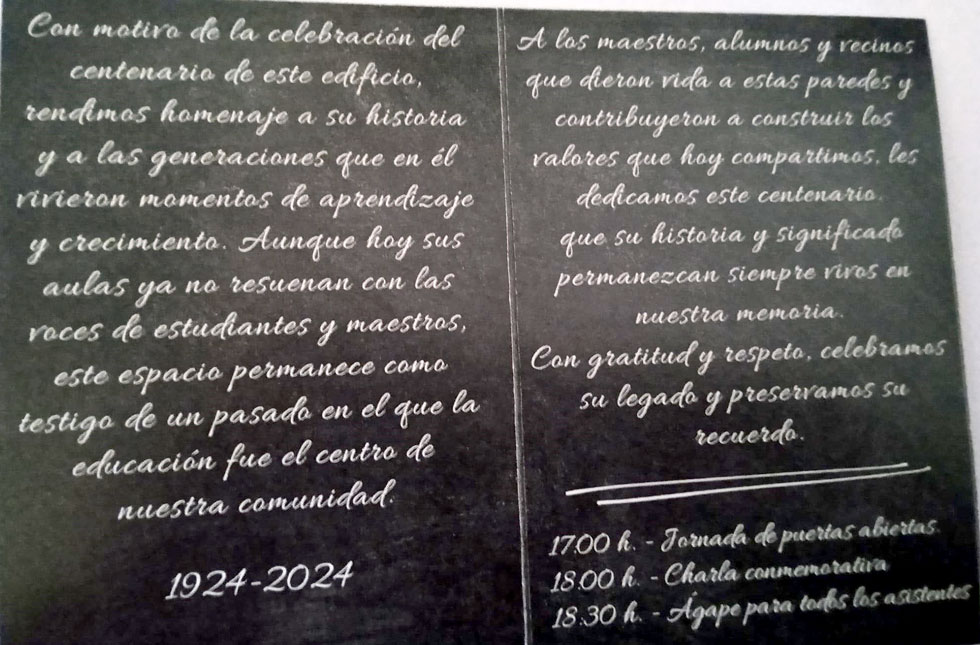 Con motivo de la celebración del
centenario de este edificio,
rendimos homenaje a su historia
y a las generaciones que en él
vivieron momentos de aprendizaje
y crecimiento. Aunque hoy sus
aulas ya no resuenan con las
voces de estudiantes y maestros,
este espacio permanece como
testigo de un pasado en el que la
educación fue el centro de
nuestra comunidad.
1924-2024
A los maestros, alumnos y vecinos
que dieron vida a estas paredes y
contribuyeron a construir los
valores que hoy compartimos, les
dedicamos este centenario.
que su historia y significado
permanezcan siempre vivos en
nuestra memoria.
Con gratitud y respeto, celebramos
su legado y preservamos su
recuerdo.
17:00 h. - Jornada de puertas abiertas.
18:00 h. - Charla conmemorativa
18:30 h. - Ágape para todos los asistentes